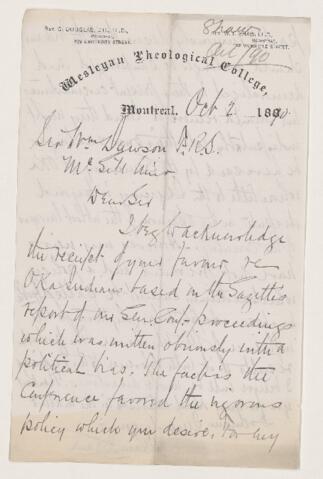 Rev. G. DOUGLAS, D.D., LL.D.,
PRINCIPAL,
Shaw
Oct/90
Wesleyan Theological College,
Montreal, Oct 2 1890.
Sir Wm Dawson F.R.S.
McGill Univ
Dear Sir
I beg to acknowledge
the receipt of your favour re
Oka Indians based on the Gazette's
report of our Gen. Conf. proceedings
which was written obviously with a
political bias. The fact is the
Conference favored the vigorous
policy which you desire. For my